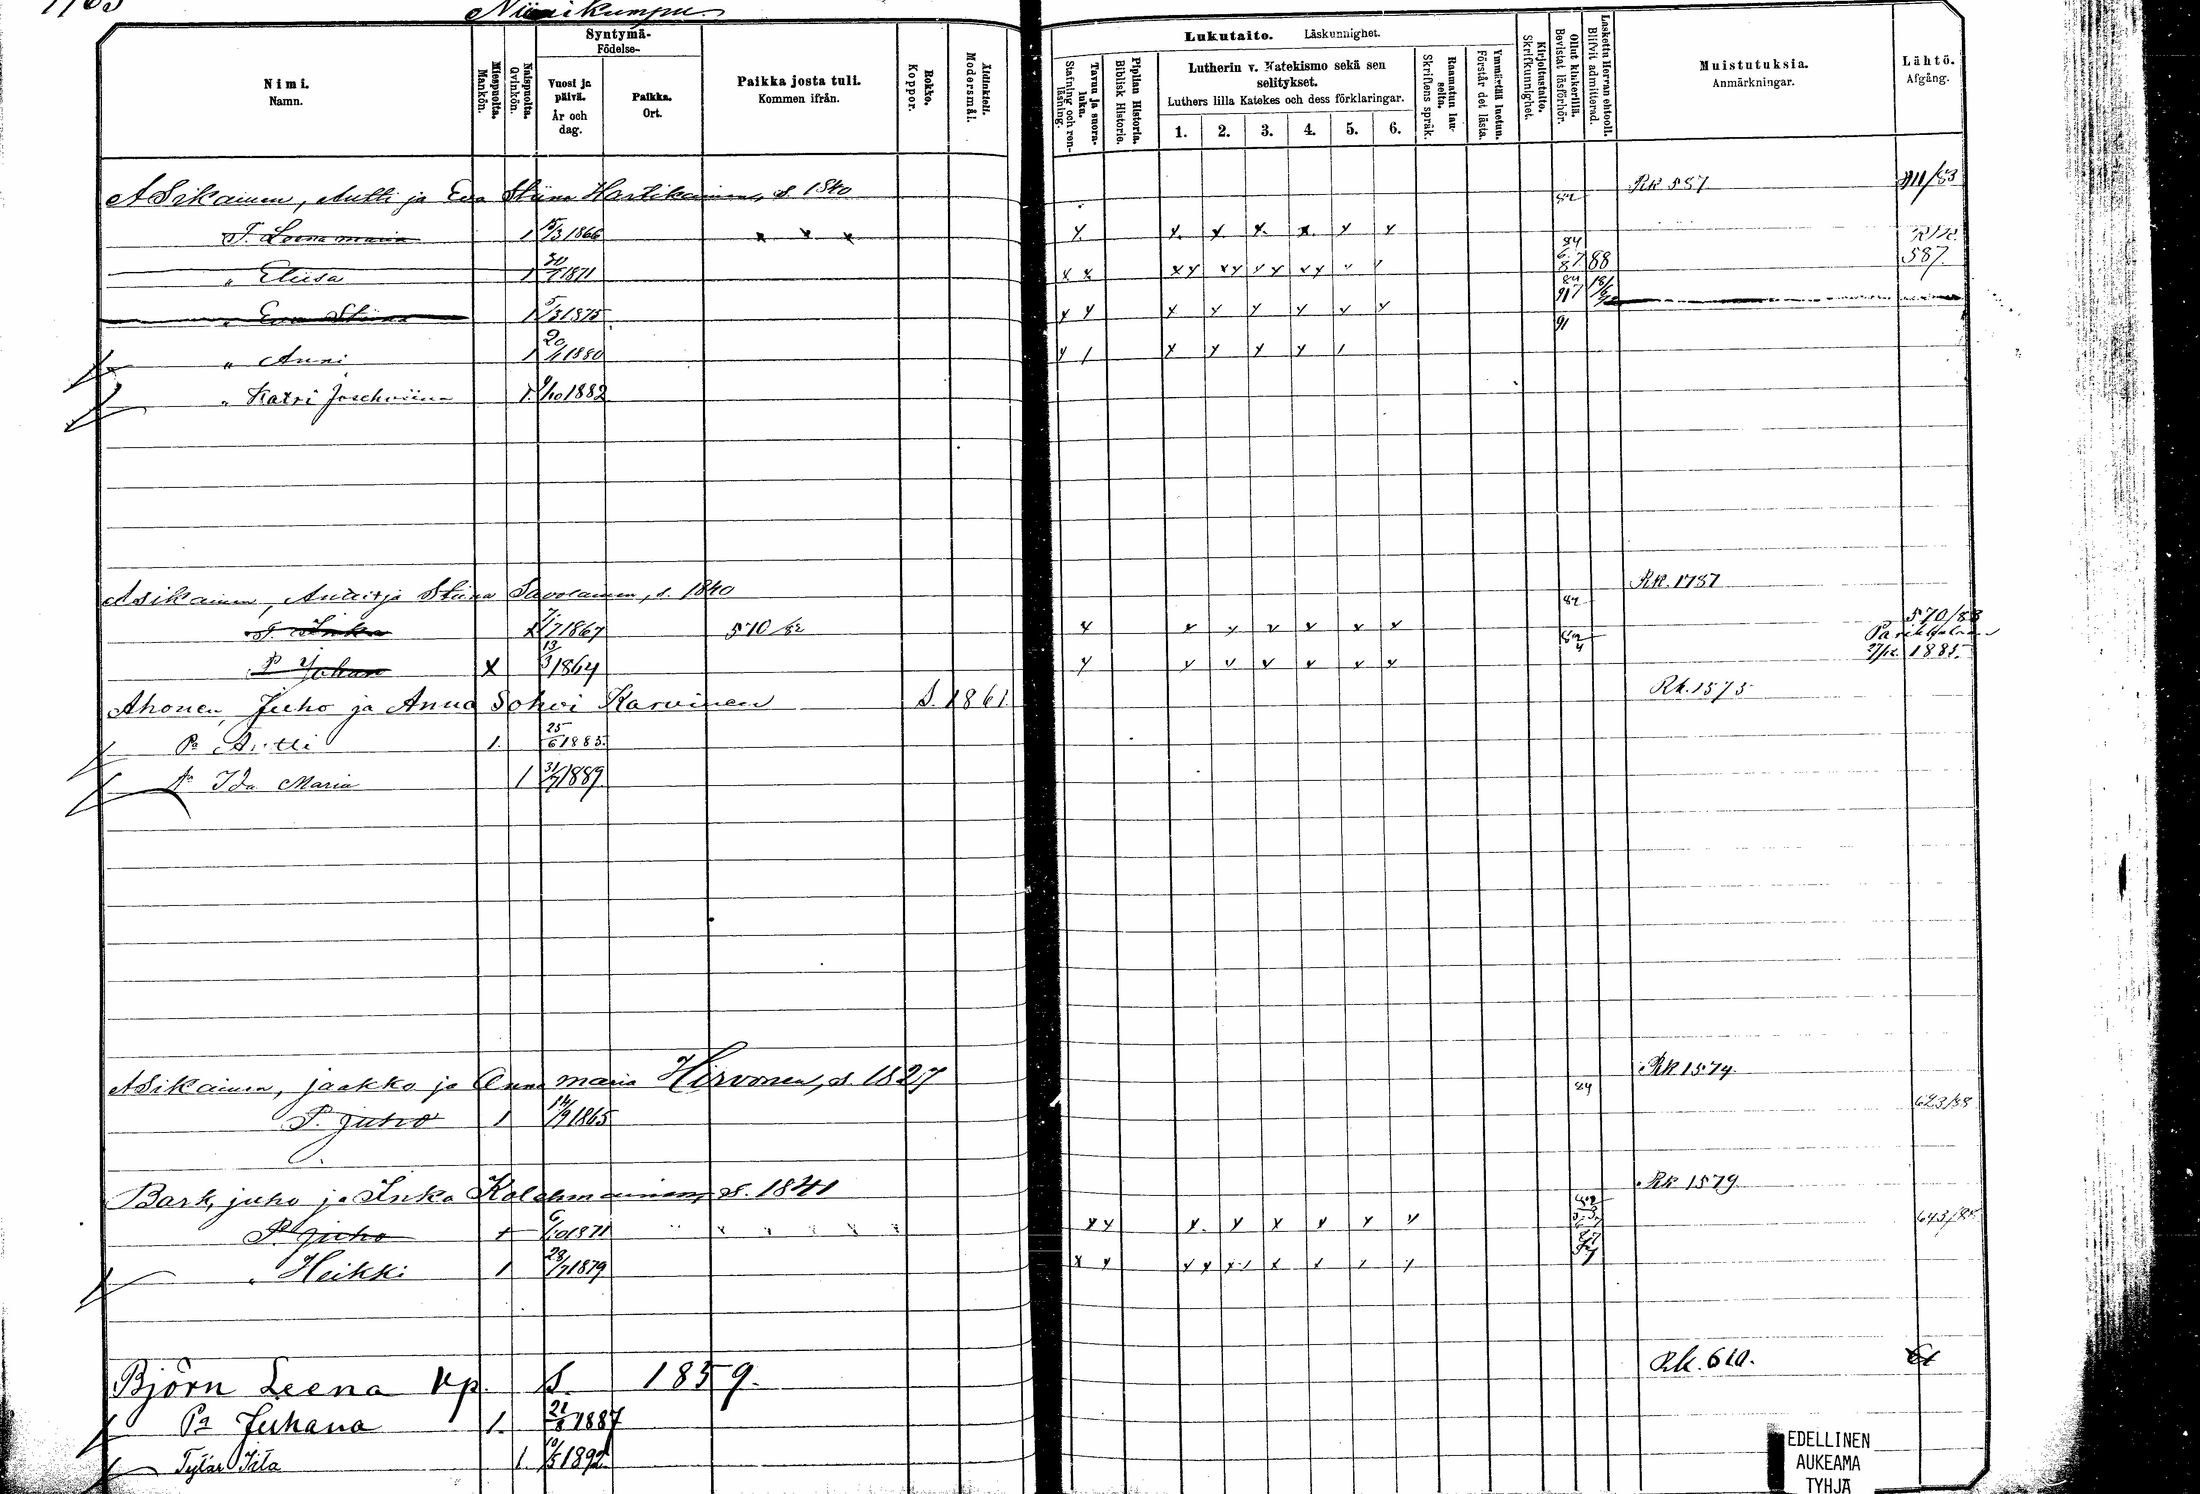 Niinikumpu.
Syntymä-
Födelse-
Nimi.
Namn.
Miespuolta.
Mankön.
Naispuolta.
Qvinkön.
Vuosi ja päivä.
År och dag.
Paikka.
Ort.
Paikka josta tuli.
Kommen ifrån.
Rokko.
Koppor.
Äidinkieli.
Modersmål.
Lukutaito. Läskunnighet.
Tavuu ja suoraluku.
Stafning och renläsning.
Piplian Historia.
Biblisk Historie.
Lutherin v. Katekismo sekä sen selitykset.
Luthers lilla Katekes och dess förklaringar.
1. 2. 3. 4. 5. 6.
Raamatun lauselta.
Skriftens språk.
Ymmärtää luetun.
Förstår det lästa.
Kirjoitustaito.
Skrifkunnighet.
Ollut lukukerillä.
Bevistat läsförhör.
Laskettu Herran ehtooll.
Blifvit admitterad.
Muistutuksia.
Anmärkningar.
Lähtö.
Afgång.
Asikainen, Antti ja Eva Stiina Hartikainen, s. 1840 82 Rk 587
T. Leena maria 1 15/3 1866 x x x x x x x x x x
" Eliisa 1 1871 x x xx xx xx xx 88 587
" Eva Stiina 1 5/3 1875 x x x x x x x x 91
" Anni 1 20/1 1880 x 1 x x x x 1
" Katri Josehviina 1. 9/10 1882
Asikainen, Antti ja Stiina Savolainen, s. 1840 82 Rk. 1787
T. Inka x 7/7 1867 570/82 x x x x x x x 570/83
P Johan x 13/3 1864 x x x x x x x Parikkalaan 1885.
Ahonen, Juho ja Anna Sohvi Karvinen S. 1861. Rk. 1575
Pa Antti 1. 25/6 1885.
Ida Maria 1 31/7 1889.
Asikainen, jaakko ja Anna maria Hirvonen, s. 1827 84 Rk 1574.
P. juho 1 14/9 1865 623/88
Bark, juho ja Inka Kolehmainen, s. 1841 Rk 1579
P. juho + 6/10 1871 xx x. x x x x x
" Heikki 1 28/7 1879 x x
Björn Leena vp. S. 1859. Rk. 610.
Pa Juhana 1. 21/8 1887
Tytär Ida 1. 10/5 1892
EDELLINEN
AUKEAMA
TYHJÄ